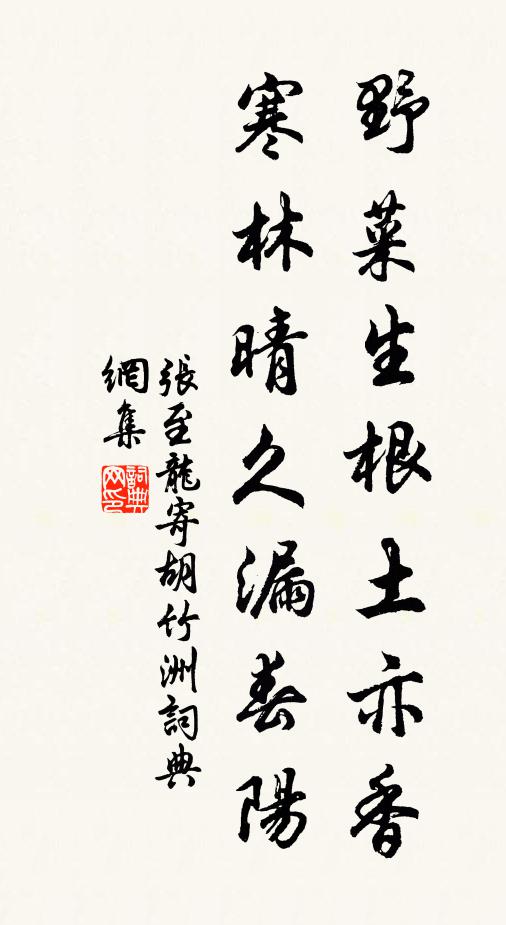 野菜生根土亦香
寒林晴久漏春陽
張至龍寄胡竹洲詞典
網集
詞典網印